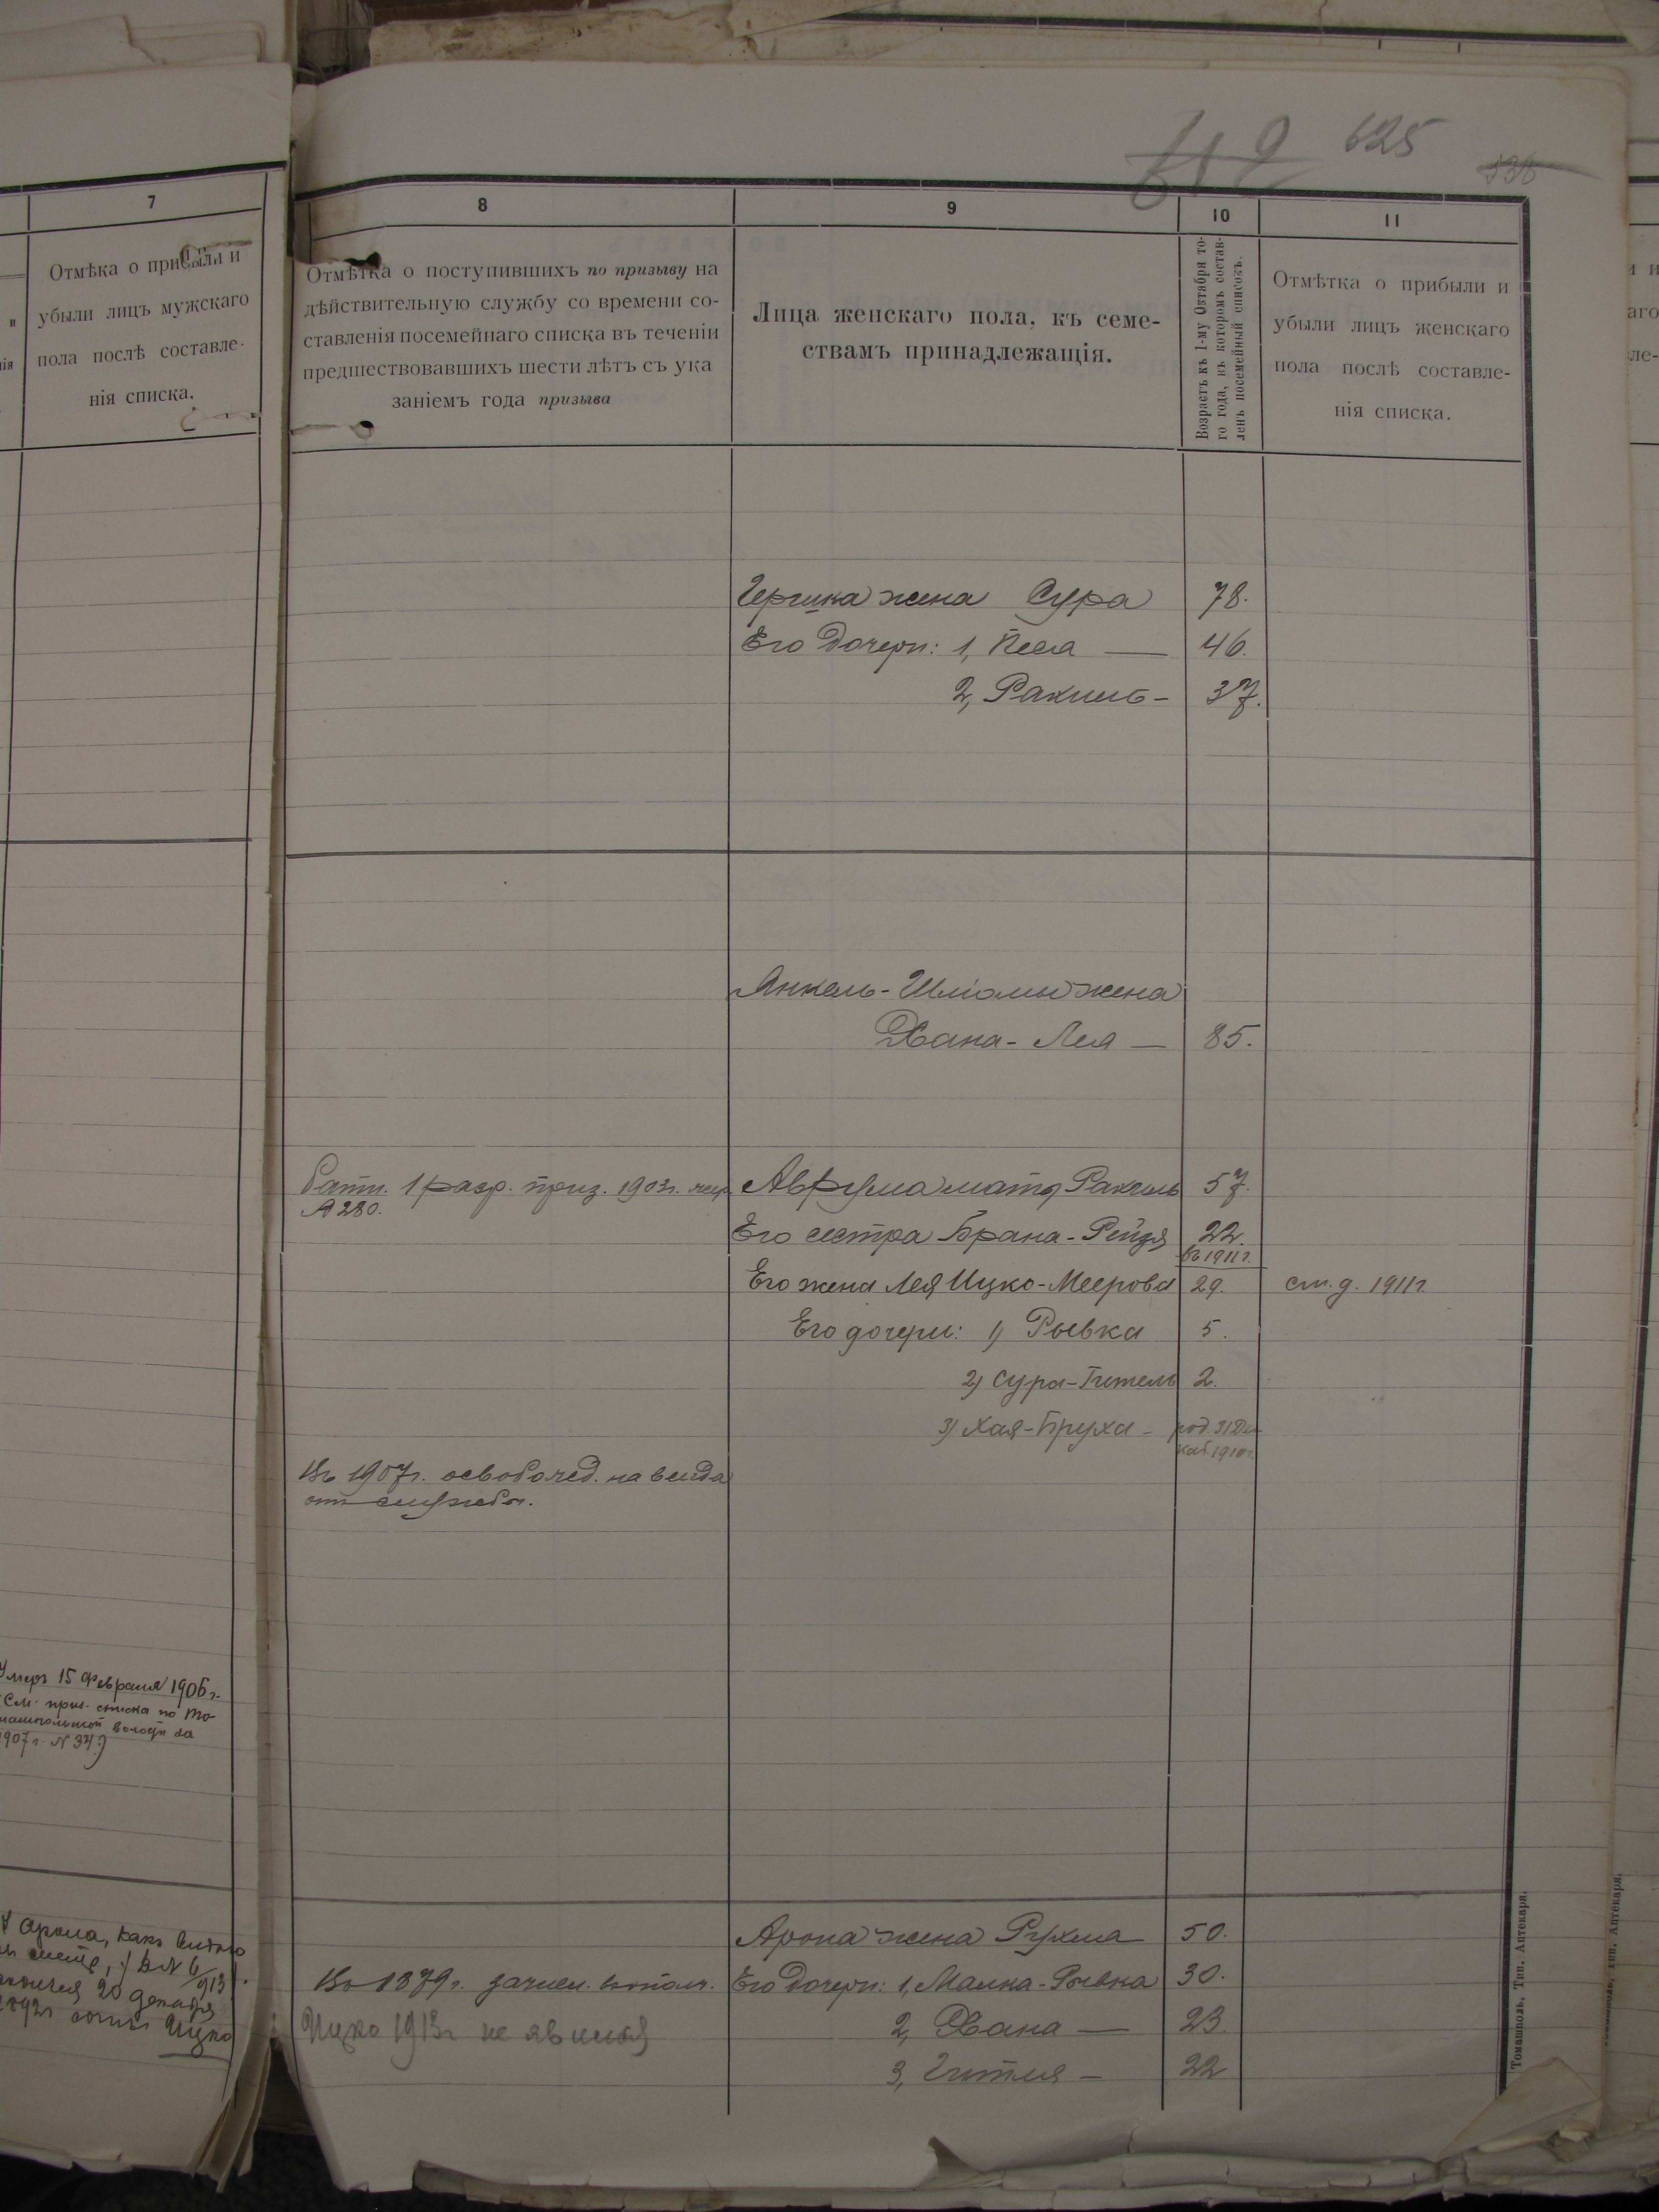 625
7
Отмѣтка о прибыли и
убыли лицъ мужскаго
пола послѣ составле-
нія списка.
Умеръ 15 Февраля 1906 г.
См. приз. списка по То-
машпольской волости за
1907 г. N 34.)
Арона, какъ видно
1892 г. сынъ Ицко
8
Отмѣтка о поступившихъ по призыву на
дѣйствительную службу со времени со-
ставленія посемейнаго списка въ теченіи
предшествовавшихъ шести лѣтъ съ ука
заніемъ года призыва
9
Лица женскаго пола, къ семе-
ствамъ принадлежащія.
10
Возрастъ къ 1-му Октября то-
го года, въ которомъ состав-
ленъ посемейный списокъ.
11
Отмѣтка о прибыли и
убыли лицъ женскаго
пола послѣ составле-
нія списка.
Гершка жена Сура 78.
Его дочери: 1, Песя — 46.
2, Рахиль - 37.
Янкель-Шліомы жена
Хана-Лея — 85.
Ратн. 1 разр. приз. 1903 г. жер. Аврума мать Рахиль 57.
№ 280.
Его сестра Брана-Рейзя 22.
въ 1911 г.
Его жена Лея Ицко-Меерова 29. см. д. 1911 г.
Его дочери: 1) Рывка 5.
2) Сура-Гитель 2.
3) Хая-Бруха - род. 31 Де-
каб. 1910 г.
Въ 1907 г. освобожд. на всегда
отъ службы.
Арона жена Рухля 50.
Въ 1879 г. зачисл. въ ополч. Его дочери: 1, Малка-Рывка 30.
Ицко 1913 г. не явился 2, Хана — 23.
3, Гитля — 22
Томашполь, Тип. Аптекаря.